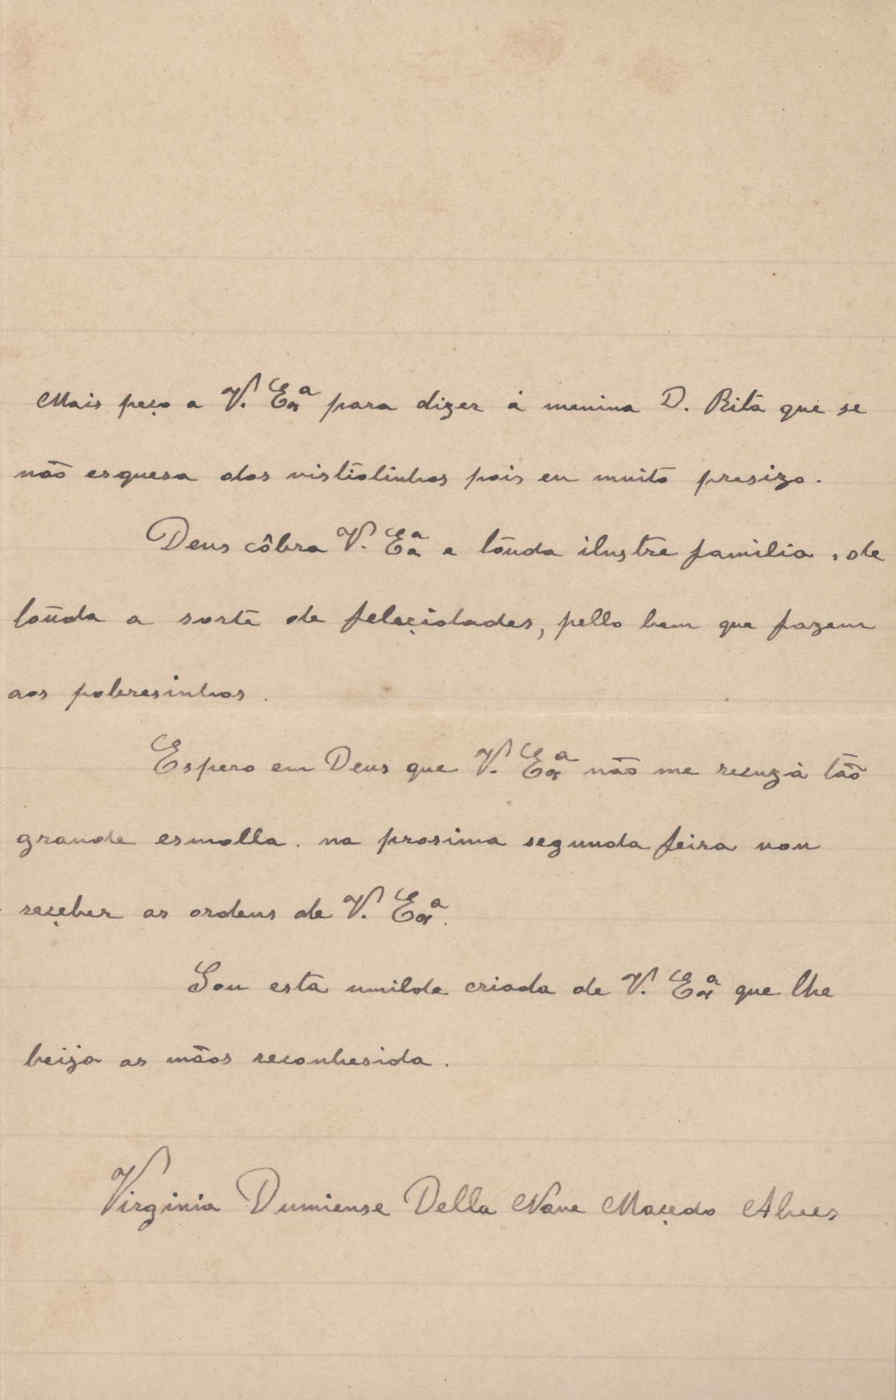 Mais peço a V. Exª para dizer á menina D. Rita que se
não esquesa dos vistidinhos pois eu muito presizo.
Deus côbra V. Eªa e tôuda ilustre familia, de
toúda a sorte de feleçidades, pello bem que fazem
aos pobresinhos.
Espero em Deus que V. Exª não me recuzá tão
grande esmolla. na prosima segunda feira vou
reçeber as ordens de V. Exª.
Sou esta umilde criada de V. Exª que lhe
beija as mãos reconhesida.
Virginia Dumiense Della Nave Maçedo Alves